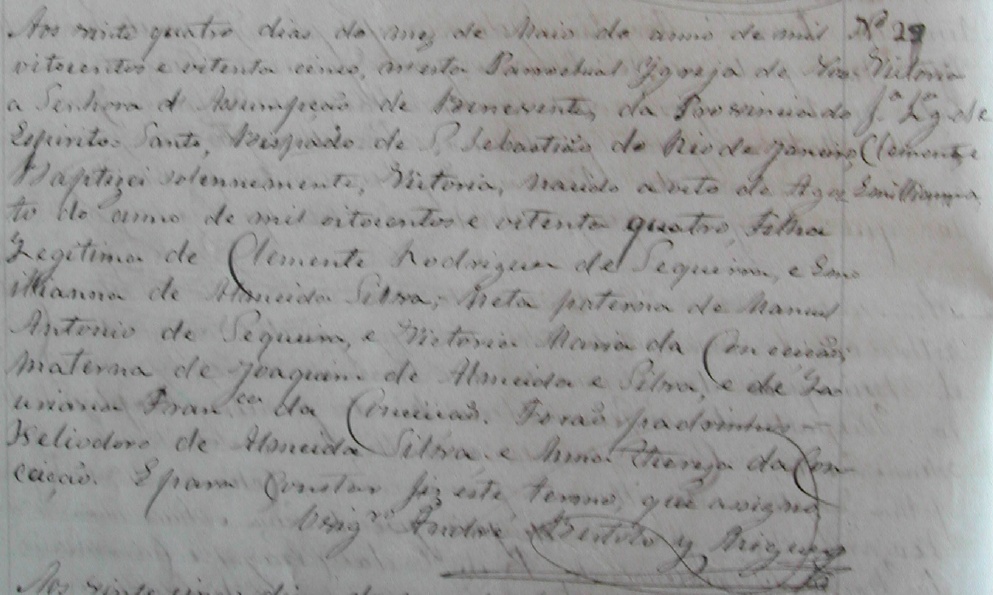 Aos vinte quatro dias do mez de Maio do anno de mil Nº 29
oitocentos e oitenta cinco, nesta Parrochial Igreja de Nos Victoria
a Senhora d'Assumpção de Benevente, da Provincia do fª Lg. de
Espirito Santo, Bispado de S. Sebastião do Rio de Janeiro, Clemente, e
Baptizei solennemente, Victoria, nacida a oito de Agos Emillianna,
to do anno de mil oitocentos e oitenta quatro, filha
Legitima de Clemente Rodrigues de Sequeira, e Emi
llianna de Almeida Silva; Neta paterna de Manuel
Antonio de Sequeira, e Victoria Maria da Conceicão
materna de Joaquim de Almeida e Silva, e de
Franca da Conceicão. Forão padrinhos
Heliodoro de Almeida Silva, e Anna Thereza da Con
ceição. E para Constar fiz este termo, que assigno
Andre
Aos vinte cinco di